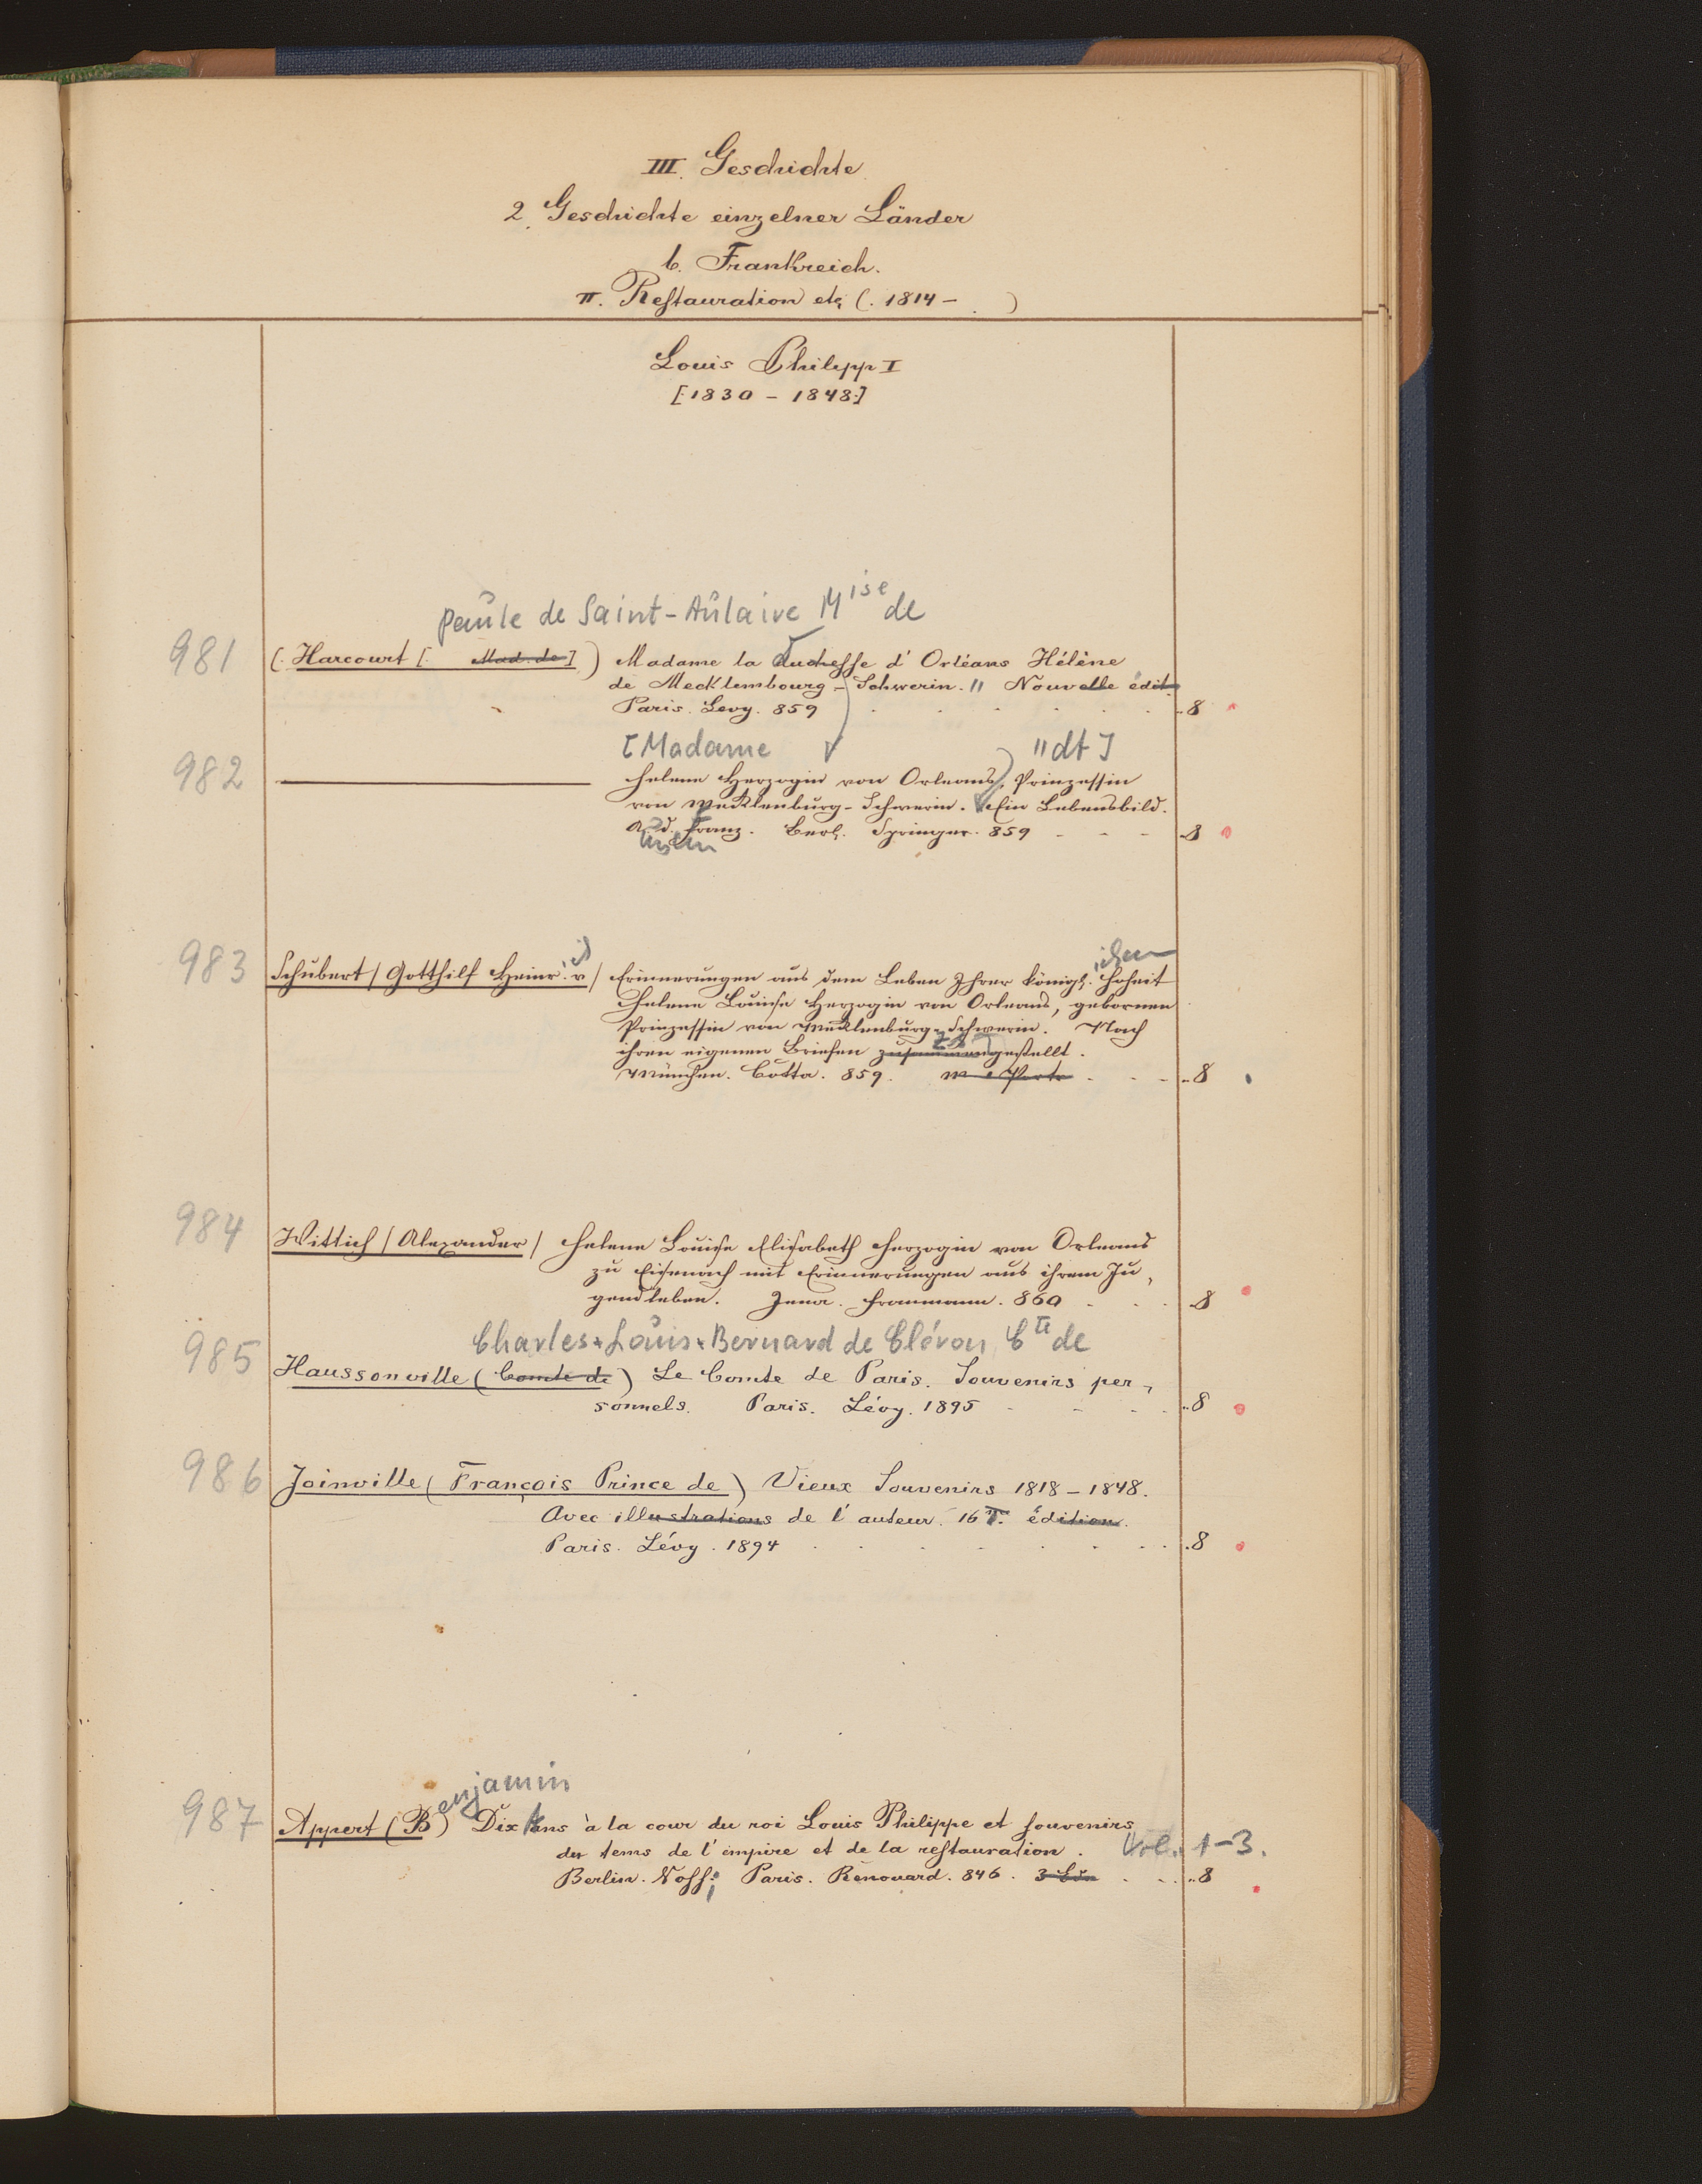 III. Geschichte
2. Geschichte einzelner Länder
b. Frankreich.
π. Restauration etc (. 1814 - . )
Louis Philipp I
[: 1830 - 1848 :]
paule de Saint-Aulaire Mise de
981 (. Harcourt [. Mad. de ] ) Madame la duchesse d'Orléans Hélène
de Mecklembourg - Schwerin. " Nouvelle édit.
Paris. Levy. 859 8
[Madame "dt ]
982 Helene Herzogin von Orleans, Prinzessin
von Mecklenburg-Schwerin. Ein Lebensbild.
A. d. Franz. Berl. Springer. 859 8
983 Schubert / Gotthilf Heinr. v / Erinnerungen aus dem Leben Ihrer königl. ichen Hoheit
Helene Louise Herzogin von Orleans, gebornen
Prinzessin von Mecklenburg-Schwerin. Nach
ihren eigenen Briefen zusammengestellt.
München. Cotta. 859. m. Portr 8
984 Wittich / Alexander / Helene Louise Elisabeth Herzogin von Orleans
zu Eisenach mit Erinnerungen aus ihrem Ju,
gendleben. Jena. Frommann. 860 8
Charles-Louis-Bernard de Cléron, Cte de
985 Haussonville ( Comte de ) Le Comte de Paris. Souvenirs per,
sonnels. Paris. Lévy. 1895 8
986 Joinville ( François Prince de ) Vieux Souvenirs 1818 - 1848.
Avec illustrations de l'auteur. 16 T. édition.
Paris. Lévy. 1894 8
enjamin
987 Appert ( B ) Dix Ans à la cour du roi Louis Philippe et souvenirs
du tems de l'empire et de la restauration. Vol. 1-3.
Berlin. Voss; Paris. Renouard. 846. 3 Bde 8